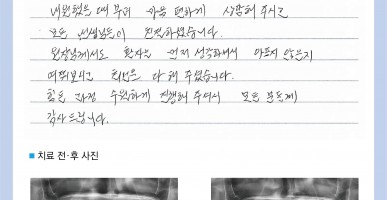 내원했을 때 부터 마음 편하게 상담해 주시고
모든 선생님들이 친절하셨습니다.
원장님께서도 환자를 먼저 생각하셔서 아프지 않은지
여쭤보시고 최선을 다 해 주셨습니다.
힘든 과정 수월하게 진행해 주셔서 모든 분들께
감사드립니다.
■ 치료 전·후 사진